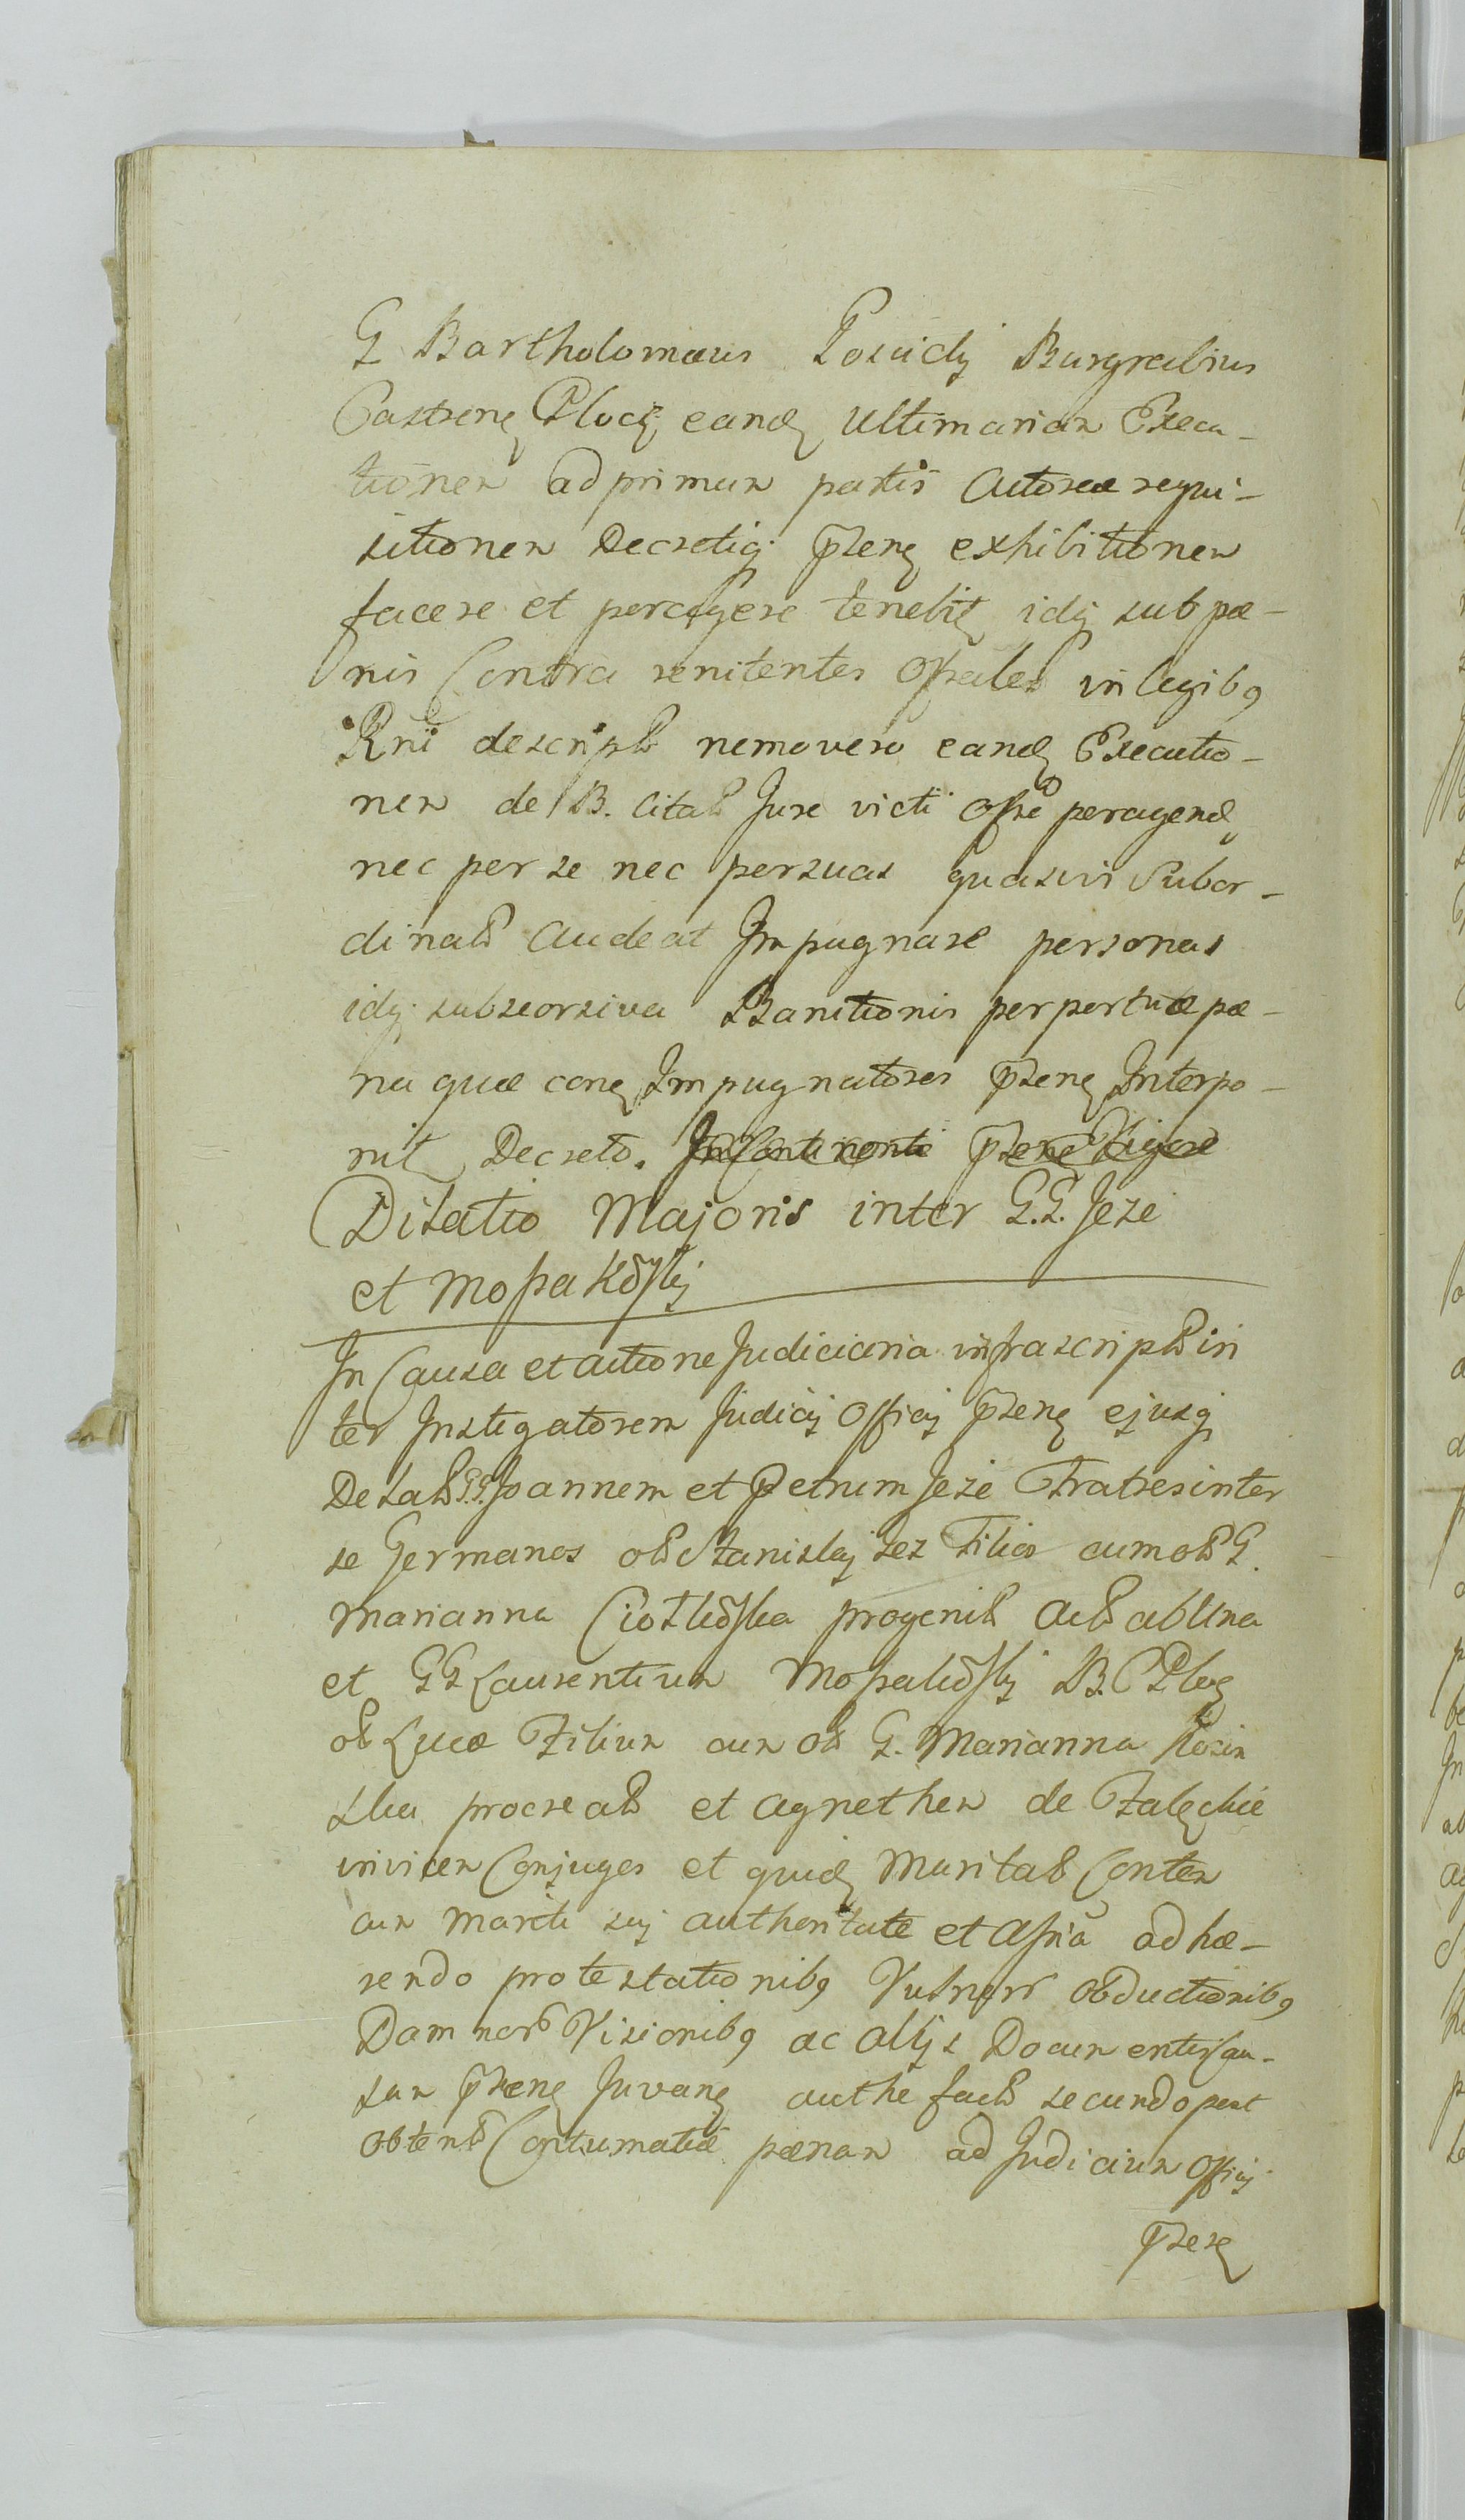 G Bartholomæus Posudÿ Burgrabius
Castreng Plocg eandg Ultimarian Execu-
tionem ad primam partis Actoreæ requi-
sitionem Decretiq p̃seng exhibitionem
facere et peragere tenebitg idq sub pæ-
nis Contra renitentes Offiales in legibg
Rni descript nemovero eandg Executio-
nem de B. Citat Jure victi Offio peragend
nec per se nec persuas quasvis Subor-
dinatas audeat Impugnare personas
idq subseorsiva Banitionis perpetuæ pæ-
na quæ cong Impugnatores p̃seng Interpo-
nitg Decreto.
Dilatio Majoris inter G.G. Jeze
et Mossakowskj
In Causa et actione Judiciaria infrascript in
ter Instigatorem Judicij Officij p̃seng ejusq
Delat G.G. Joannem et Petrum Jeze Fratres inter
se Germanos olim Stanislaj Jez Filios cum olim G.
Marianna Ciotkowska progenit Act ab Una
et GG Laurentium Mossakowskj B. C. Plocg
olim Lucæ Filium cum olim G. Marianna Kosin
ska procreat et Agnethem de Załęskie
invicem Conjuges et quidg Maritat Conten
cum Mariti suj authoritate et Assña adhæ-
rendo protestationibg Vulner obductionibg
Damnor Visionibg ac Alijs Documentis Cau-
sam p̃seng Juvang Citathe fact secundo post
obtent Contumatiæ pænam ad Judicium Officij
p̃seng